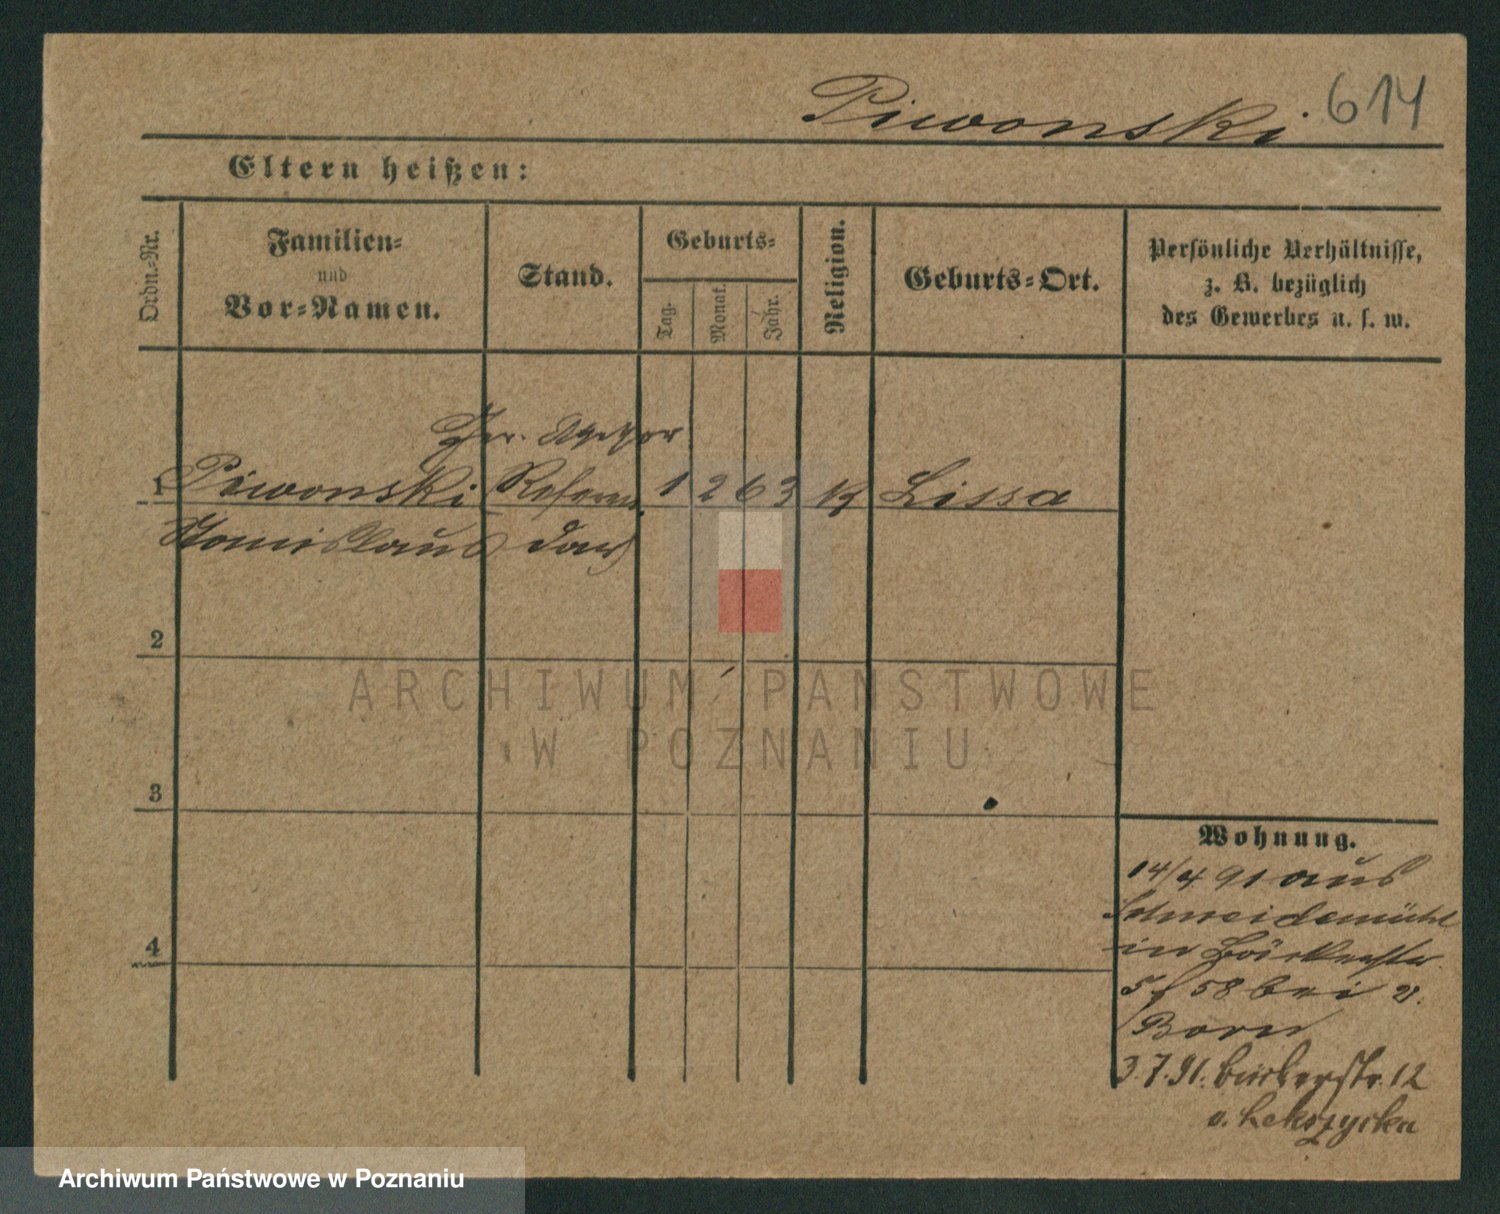 Piwonski 614
Eltern heißen:
Ordn.-Nr.
Familien-
und
Vor-Namen.
Stand.
Geburts-
Tag.
Monat.
Jahr.
Religion.
Geburts-Ort.
Persönliche Verhältnisse,
z. B. bezüglich
des Gewerbes u. s. w.
1 Piwonski Referen 1 2 63 K Lissa
Stanislaus dar
2
3
4
Wohnung.
14/4 91 aus
Schneidemühl
in Bäckerstr
58 bei v.
Born
3.7.91. Bäckerstr. 12
v. Lekszycka
ARCHIWUM PAŃSTWOWE
W POZNANIU
Archiwum Państwowe w Poznaniu